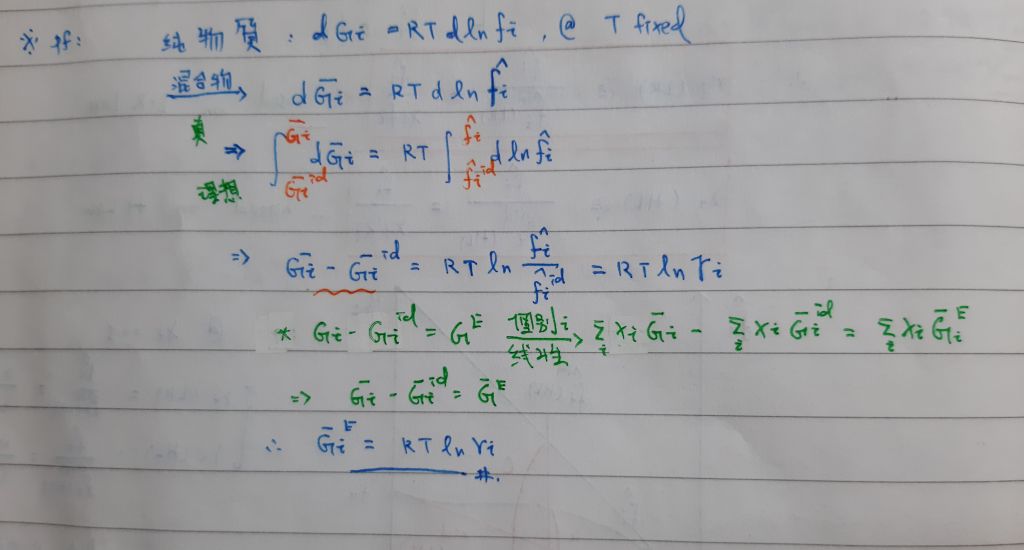 ※ pf: 純物質 : dGi = RT d ln fi , @ T fixed
混合物→ dḠi = RT d ln f̂i
真
理想 ⇒ ∫_{Ḡi^id}^{Ḡi} dḠi = RT ∫_{f̂i^id}^{f̂i} d ln f̂i
⇒ Ḡi - Ḡi^id = RT ln f̂i / f̂i^id = RT ln γi
* Gi - Gi^id = G^E 個別i 线性→ Σi xi Ḡi - Σi xi Ḡi^id = Σi xi Ḡi^E
⇒ Ḡi - Ḡi^id = Ḡ^E
∴ Ḡi^E = RT ln γi #.